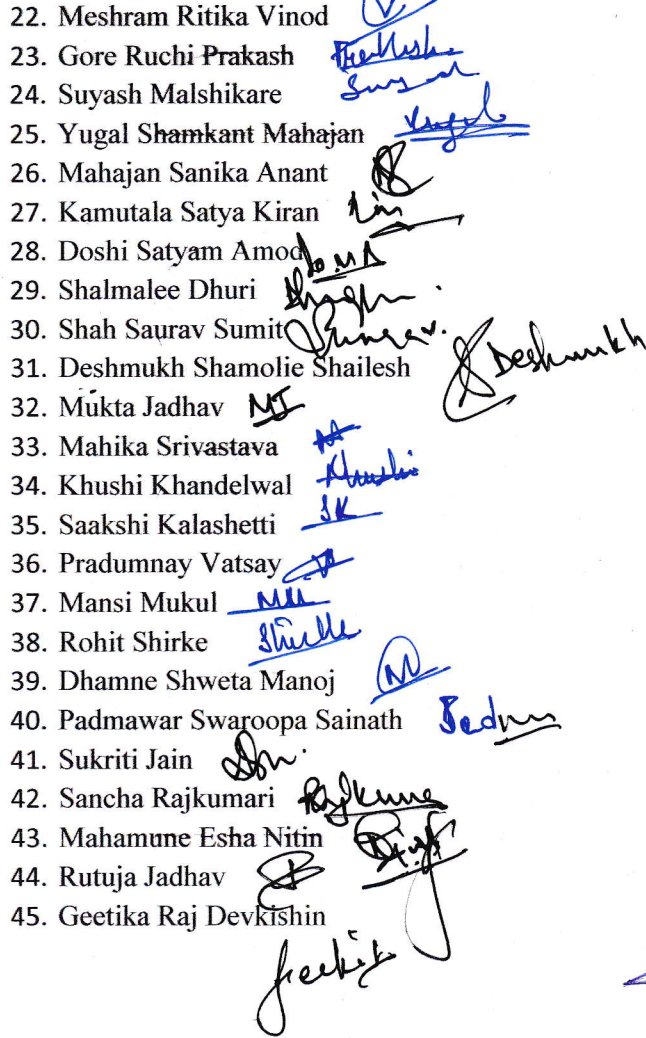 22. Meshram Ritika Vinod
23. Gore Ruchi Prakash
24. Suyash Malshikare
25. Yugal Shamkant Mahajan Yugal
26. Mahajan Sanika Anant
27. Kamutala Satya Kiran
28. Doshi Satyam Amod
29. Shalmalee Dhuri
30. Shah Saurav Sumit
31. Deshmukh Shamolie Shailesh Deshmukh
32. Mukta Jadhav MJ
33. Mahika Srivastava
34. Khushi Khandelwal Khushi
35. Saakshi Kalashetti SK
36. Pradumnay Vatsay
37. Mansi Mukul
38. Rohit Shirke
39. Dhamne Shweta Manoj
40. Padmawar Swaroopa Sainath
41. Sukriti Jain
42. Sancha Rajkumari
43. Mahamune Esha Nitin
44. Rutuja Jadhav
45. Geetika Raj Devkishin